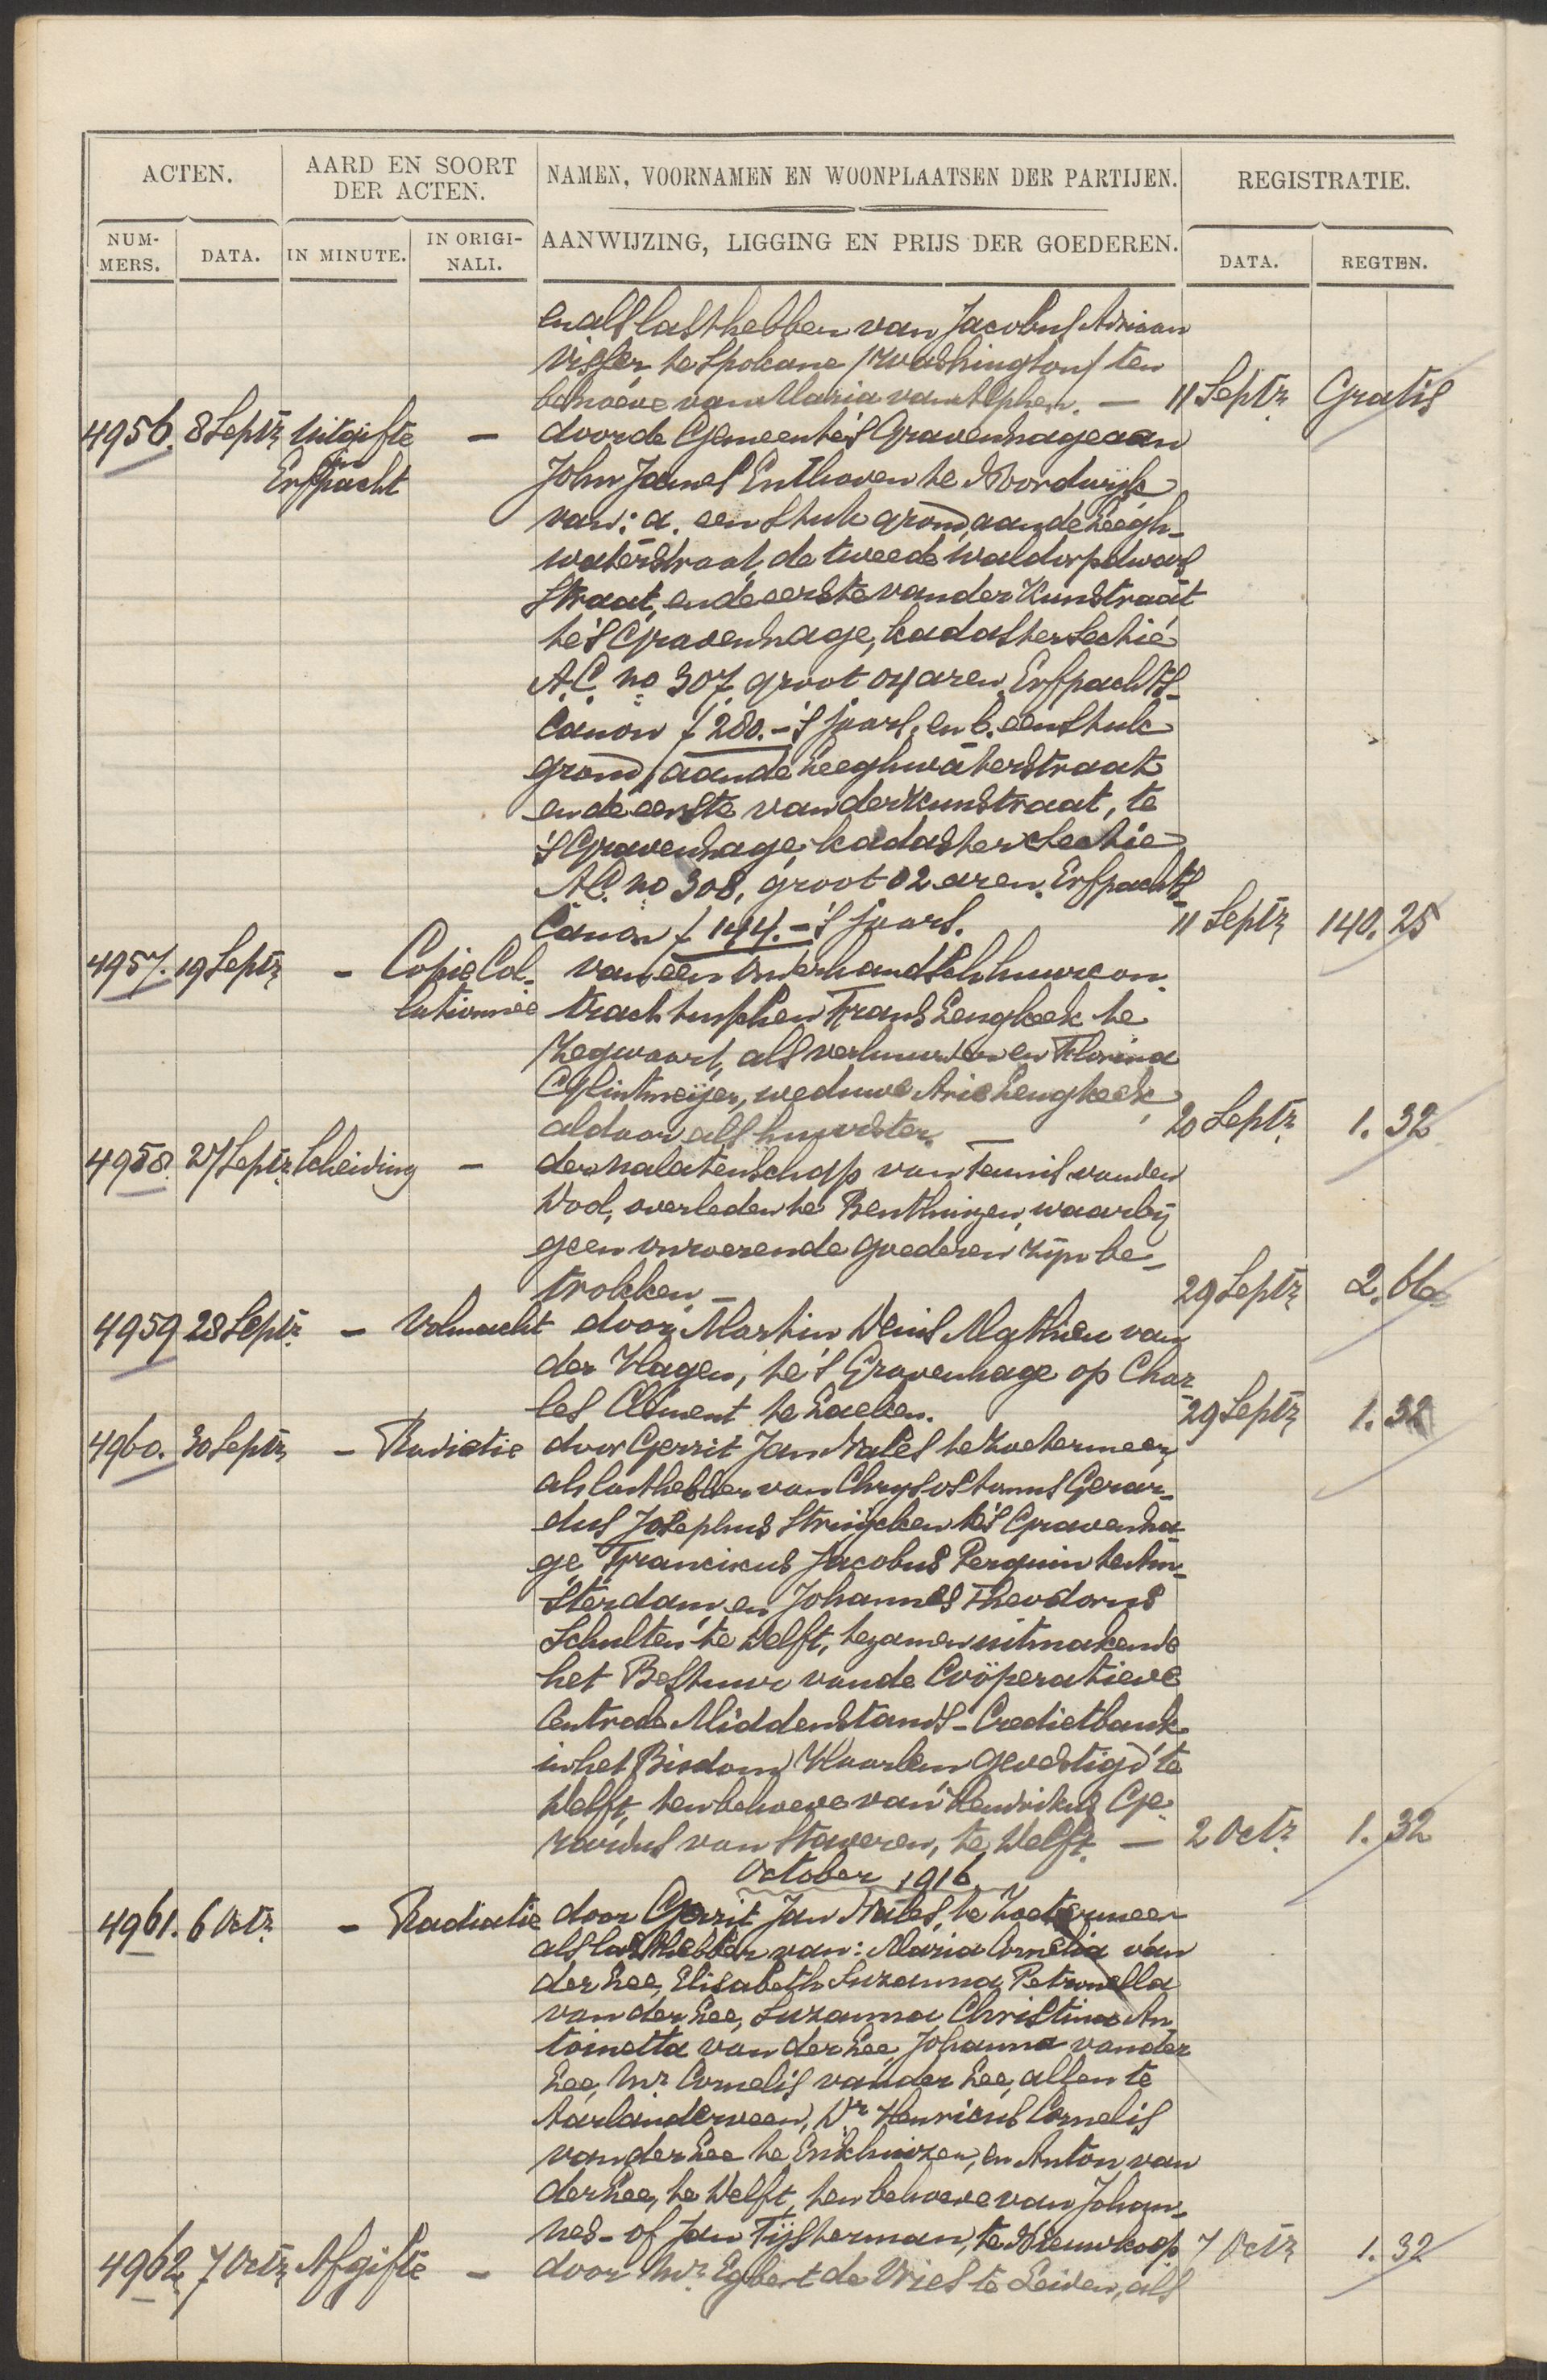 ACTEN.
AARD EN SOORT
DER ACTEN.
NAMEN, VOORNAMEN EN WOONPLAATSEN DER PARTIJEN.
REGISTRATIE.
NUM-
MERS.
DATA.
IN MINUTE.
IN ORIGI-
NALI.
AANWIJZING, LIGGING EN PRIJS DER GOEDEREN.
DATA.
REGTEN.
en als lasthebben van Jacobus Adriaan
Visser te Spokane /Washington/ ten
behoeve van Maria van Alphen. — 11 Septr. Gratis
4956. 8 Septr. Uitgifte — door de Gemeente 's Gravenhage aan
in
Erfpacht John James Enthoven te Noordwijk
van: a. een stuk grond, aan de Leegh-
waterstraat, de tweede Waldorpdwars
straat, en de eerste van der Kunstraat
te 's Gravenhage, kadaster sectie
A.C. no 307, groot 04 aren. Erfpachts-
canon f 280.- 's jaars, en b. een stuk
grond, aan de Leeghwaterstraat
en de eerste van der Kunstraat, te
's Gravenhage, kadaster sectie
A.C. no 308, groot 02 aren. Erfpachts-
canon f 144.- 's jaars. 11 Septr. 140. 25
4957. 19 Septr. — Copie Col- van een onderhandsch huurcon-
lationnée tract tusschen Frans Lengkeek te
Zegwaart, als verhuurder en Florina
Glintmeijer, weduwe Arie Lengkeek,
aldaar als huurster. — 20 Septr. 1. 32
4958. 27 Septr. Scheiding — der nalatenschap van Teunis van den
Dool, overleden te Benthuizen, waarbij
geen onroerende goederen zijn be-
trokken. — 29 Septr. 2. 66
4959 28 Septr. — Volmacht door Martin Denis Mathieu van
der Hagen, te 's Gravenhage op Char-
les Clément te Laeken. 29 Septr. 1. 32
4960. 30 Septr. — Radiatie door Gerrit Jan Nates te Zoetermeer,
als lasthebber van Chrysostomus Gerar-
dus Josephus Strijcken te 's Gravenha-
ge, Franciscus Jacobus Perquin te Am-
sterdam, en Johannes Theodorus
Schulten te Delft, tezamen uitmakende
het Bestuur van de Coöperatieve
Centrale Middenstands-Credietbank
in het Bisdom Haarlem gevestigd te
Delft, ten behoeve van Hendrikus Ge-
rardus van Staveren, te Delft. — 2 Octr. 1. 32
October 1916
4961. 6 Octr. — Radiatie door Gerrit Jan Nates, te Zoetermeer
als lasthebber van: Maria Cornelia van
der Lee, Elisabeth Suzanna Petronella
van der Lee, Suzanna Christina An-
toinetta van der Lee, Johanna van der
Lee, Mr. Cornelis van der Lee, allen te
Aarlanderveen, Dr. Henricus Cornelis
van der Lee te Enkhuizen, en Anton van
der Lee, te Delft, ten behoeve van Johan-
nes- of Jan Tijsterman, te Nieuwkoop 7 Octr. 1. 32
4962. 7 Octr. Afgifte — door Mr. Egbert de Vries te Leiden, als